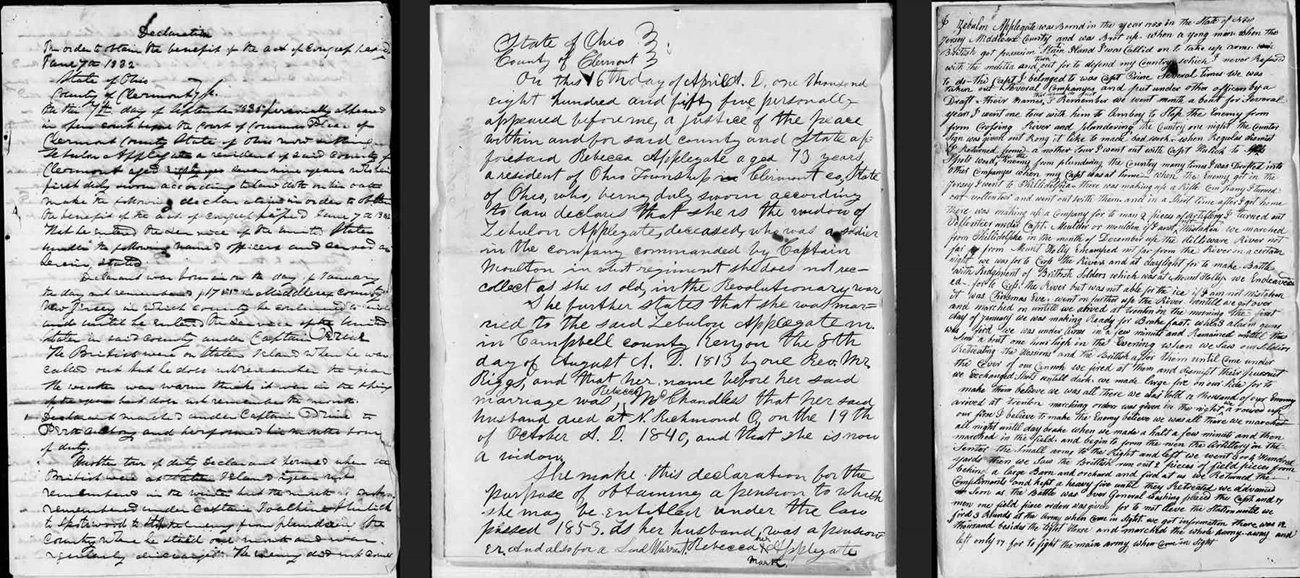 Declaration
In order to obtain the benefit of the act of Congress passed
June 7th 1832
State of Ohio
County of Clermont ss.
On this 7th day of September 1835 personally appeared
in open court before the Court of Common Pleas of
Clermont County State of Ohio now sitting
Zebulon Applegate a resident of said County of
Clermont aged seventy nine years who being
first duly sworn according to law doth on his oath
make the following declaration in order to obtain
the benefit of the Act of Congress passed June 7th 1832
That he entered the service of the United States
under the following named officers and served as
herein stated
Declarant was born on the day of January
the day not remembered in Middlesex County
New Jersey in which county he continued to live
and until he entered the service of the United
States in said County under Captain
The British were on Staten Island when he was
called out but he does not remember the year
the weather was warm thinks it was in the spring
but does not remember the month.
Declarant marched under Captain to
Perth Amboy and performed his months tour
of duty.
Another tour of duty Declarant served when the
British were at Staten Island year not
remembered in the month not
remembered under Captain
to Spotswood to the enemy from plundering the
County when he staid out month and was
regularly discharged. The enemy did not come
State of Ohio
County of Clermont
On this 16th day of April A. D. one thousand
eight hundred and fifty five personally
appeared before me, a justice of the peace
within and for said county and State a-
foresaid Rebecca Applegate aged 73 years
a resident of Ohio Township in Clermont co, State
of Ohio, who, being duly sworn according
to law declares that she is the widow of
Zebulon Applegate, deceased, who was a soldier
in the company commanded by Captain
Moulton in what regiment she does not rec-
collect as she is old, in the Revolutionary war
She further states that she was mar-
ried to the said Zebulon Applegate in
in Campbell county Ken, on the 8th
day of August A. D. 1813 by one Rev. Mr.
Riggs, and that her name before her said
marriage was, Rebecca McChandless that her said
husband died at N. Richmond O, on the 19th
of October A. D. 1840, and that she is now
a widow.
She make this declaration for the
purpose of obtaining a pension to which
she may be entitled under the law
passed 1853. As her husband, was a pension-
er, and also for a Land Warrant, Rebecca her Applegate
mark.
6 Zebulon Applegate was Bornd in the year in the State of New
Jersey Middlesex County and was Brot up. when a yong man when the
British got possesion Staten Island I was Called on to take up arms
with the militia and out for to defend my Country which I never Refused
to do the Capt I belonged to was Capt Prine Several times we was
taken out Several Companeys and put under other officers by a
Draft their names, I Remember we went month a bout for Several
year, I went one tour with him to Amboy to Stop the Enemy from
from Crosing River and plundering the Country one night the Counter
Sign was a mother tour I went out with Capt to
from plundring the Country many times I was Drafted into
other Companeys when my Capt was at home when the Enemy got in the
Jersey I went to Philidelphia there was making up a Rifle Company I turned
out volentier and went out with them and in a Short time after I got home
there was making up a Company for to man 2 pieces of I turned out
Vollentier under Capt. Moulder or moulden if I aint Mistaken we marched
from Philidelphia in the month of December up the Dilleware River not
far from Mount Holly Encamped not far from the River in a certain
night we was for to Cros the River and at daylight for to make Battle
with Ridgement of British Solders which was at Mount Holly we Endeavered
ed. for to Cros the River but was not able for the ice if I am not Mistaken
it was Christmas Eve. went on further up the River untill we got over
and marched on untill we arived at Trenton in the morning the first
day of january we was making Ready for Brake fast. whilst alarm gun
was fired we was under arms in a few minuts and Remained untill the
Sun a bout one hour high in the Evening when we Saw our Solders
Retreating the Hessions and the British after them untill Come under
the Cover of our Cannon we fired at them and Stopt their pursuit
we Exchanged Shots untill dark. we made large fire on our Side for to
make them believe we was all there we was told a thousand of our Enemy
arived at Trenton marching orders was given in the night a rouse up
our fires I believe to make the Enemy believe we was all there we marched
all night untill day brake when we made a halt a few minuts and then
marched in the field. and begin to form the men the Artillery in the
Senter the Small arms to the Right and left we went 3 or 4 Hundred
yards then we Saw the British run out 2 pieces of field pieces from
behind a large Barn and orchard and fird at us we Returned the
Compliments and kept a heavy fire untill they Retreated we advanced
as Soon as the Battle was over General Washing placed the Capt and 17
men one field piece orders was given for to not leave the Station untill we
fird 3 Rounds at the Army when Come in Sight. we got information there was 12
thousand beside the light Horse and marched the whole Army away and
left only 17 for to fight the main army when Come in Sight